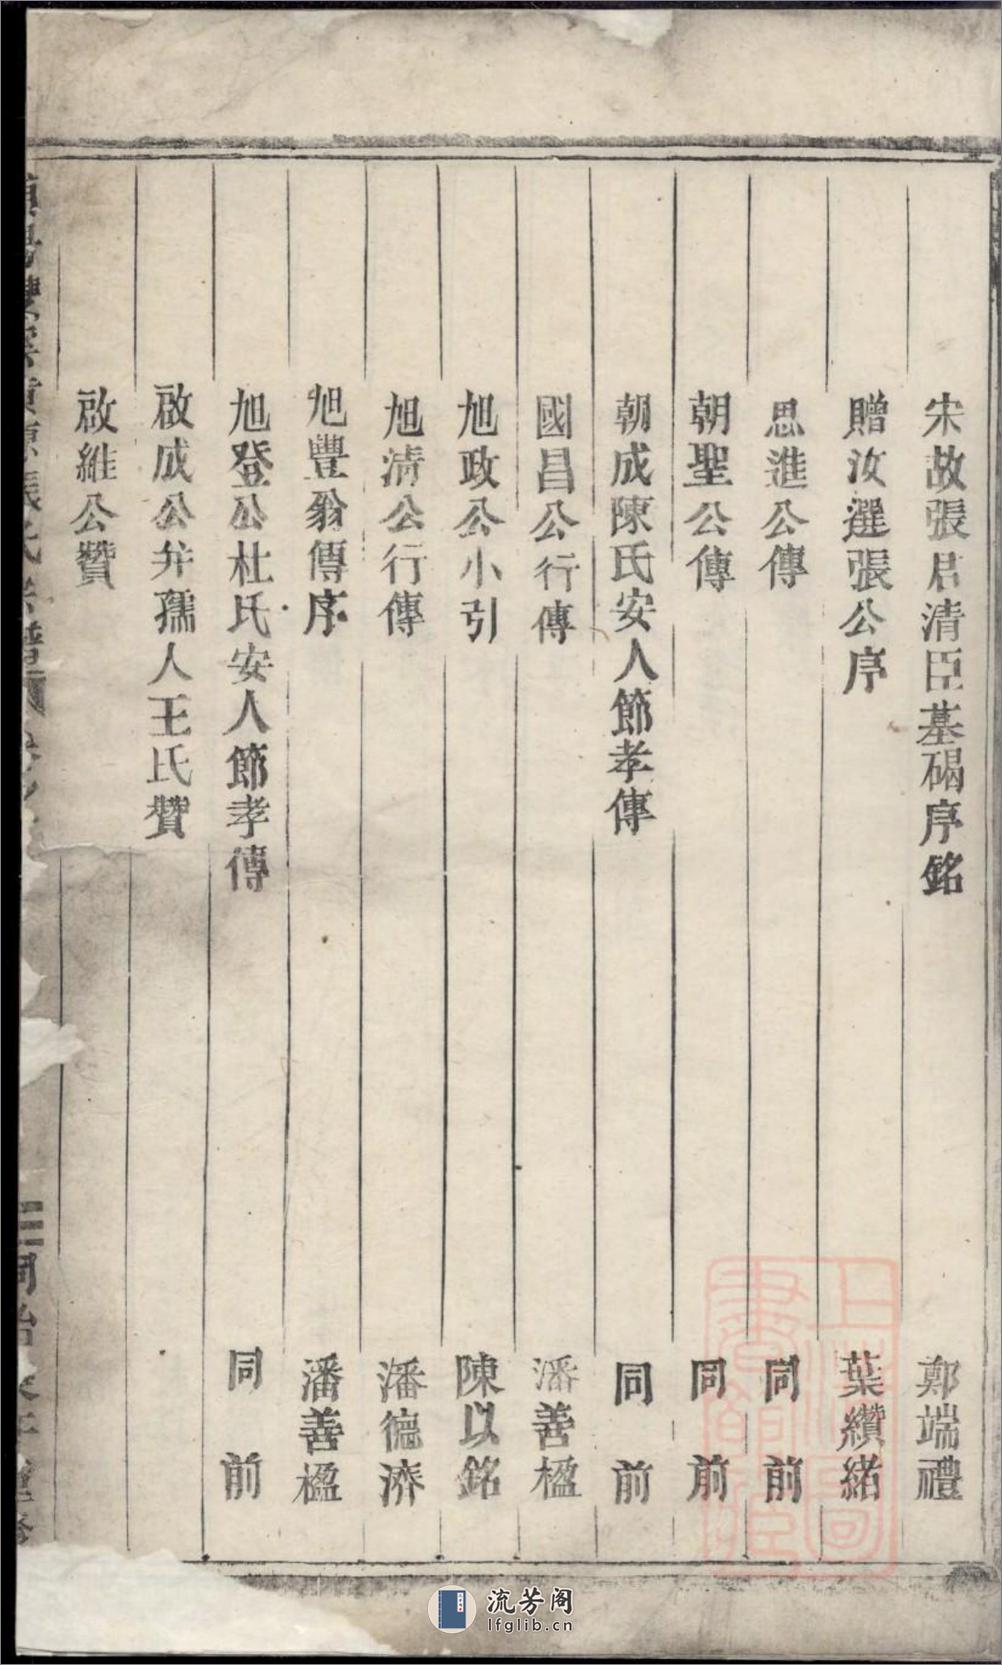 宋故張君清臣墓碣序銘 鄭端禮
贈汝選張公序 葉纘緒
思進公傳 同前
朝聖公傳 同前
朝成陳氏安人節孝傳 同前
國昌公行傳 潘善楹
旭政公小引 陳以銘
旭清公行傳 潘德濟
旭豐翁傳序 潘善楹
旭登公杜氏安人節孝傳 同前
啟成公并孺人王氏贊
啟維公贊
張氏宗譜
同治
上海圖書館藏
流芳阁
lfglib.cn